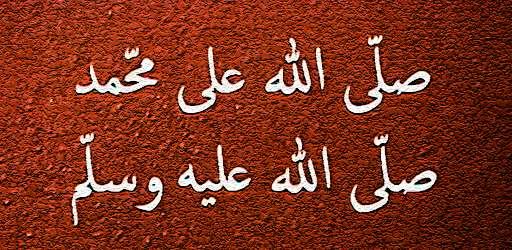 صلّى الله على محّمد
صلّى الله عليه وسلّم